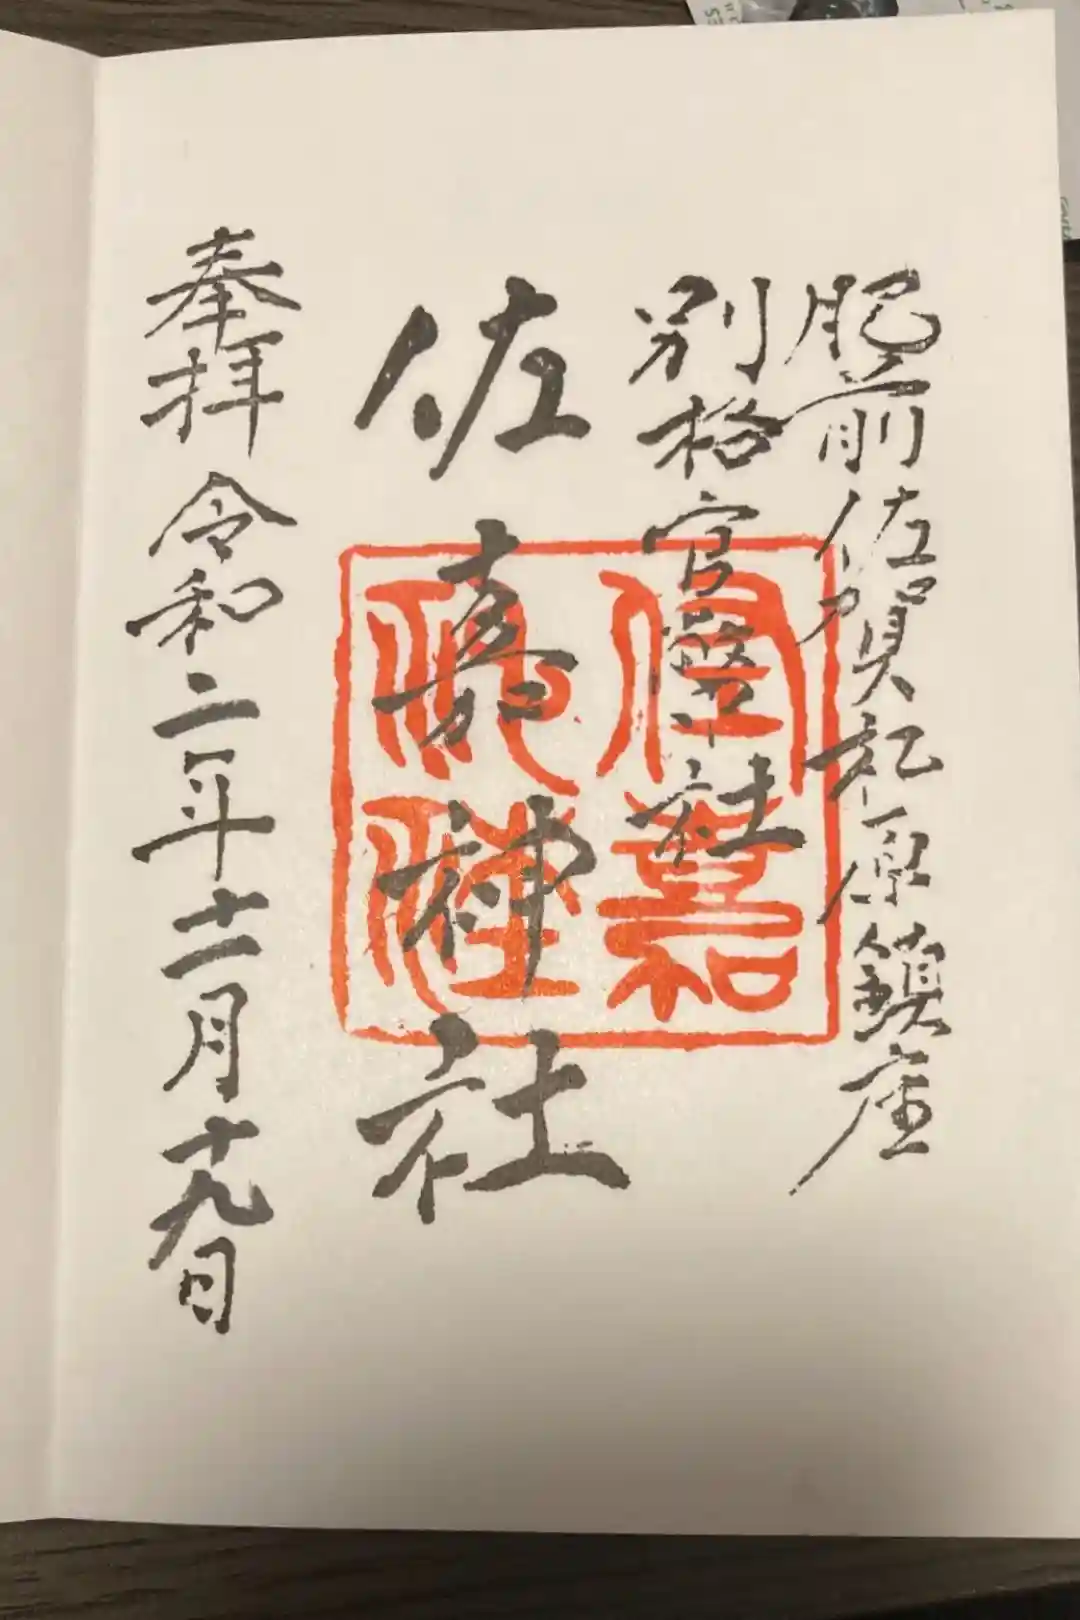 肥前佐賀松原鎮座
別格官幣社
佐嘉神社
奉拝 令和二年十二月十九日
佐嘉神社